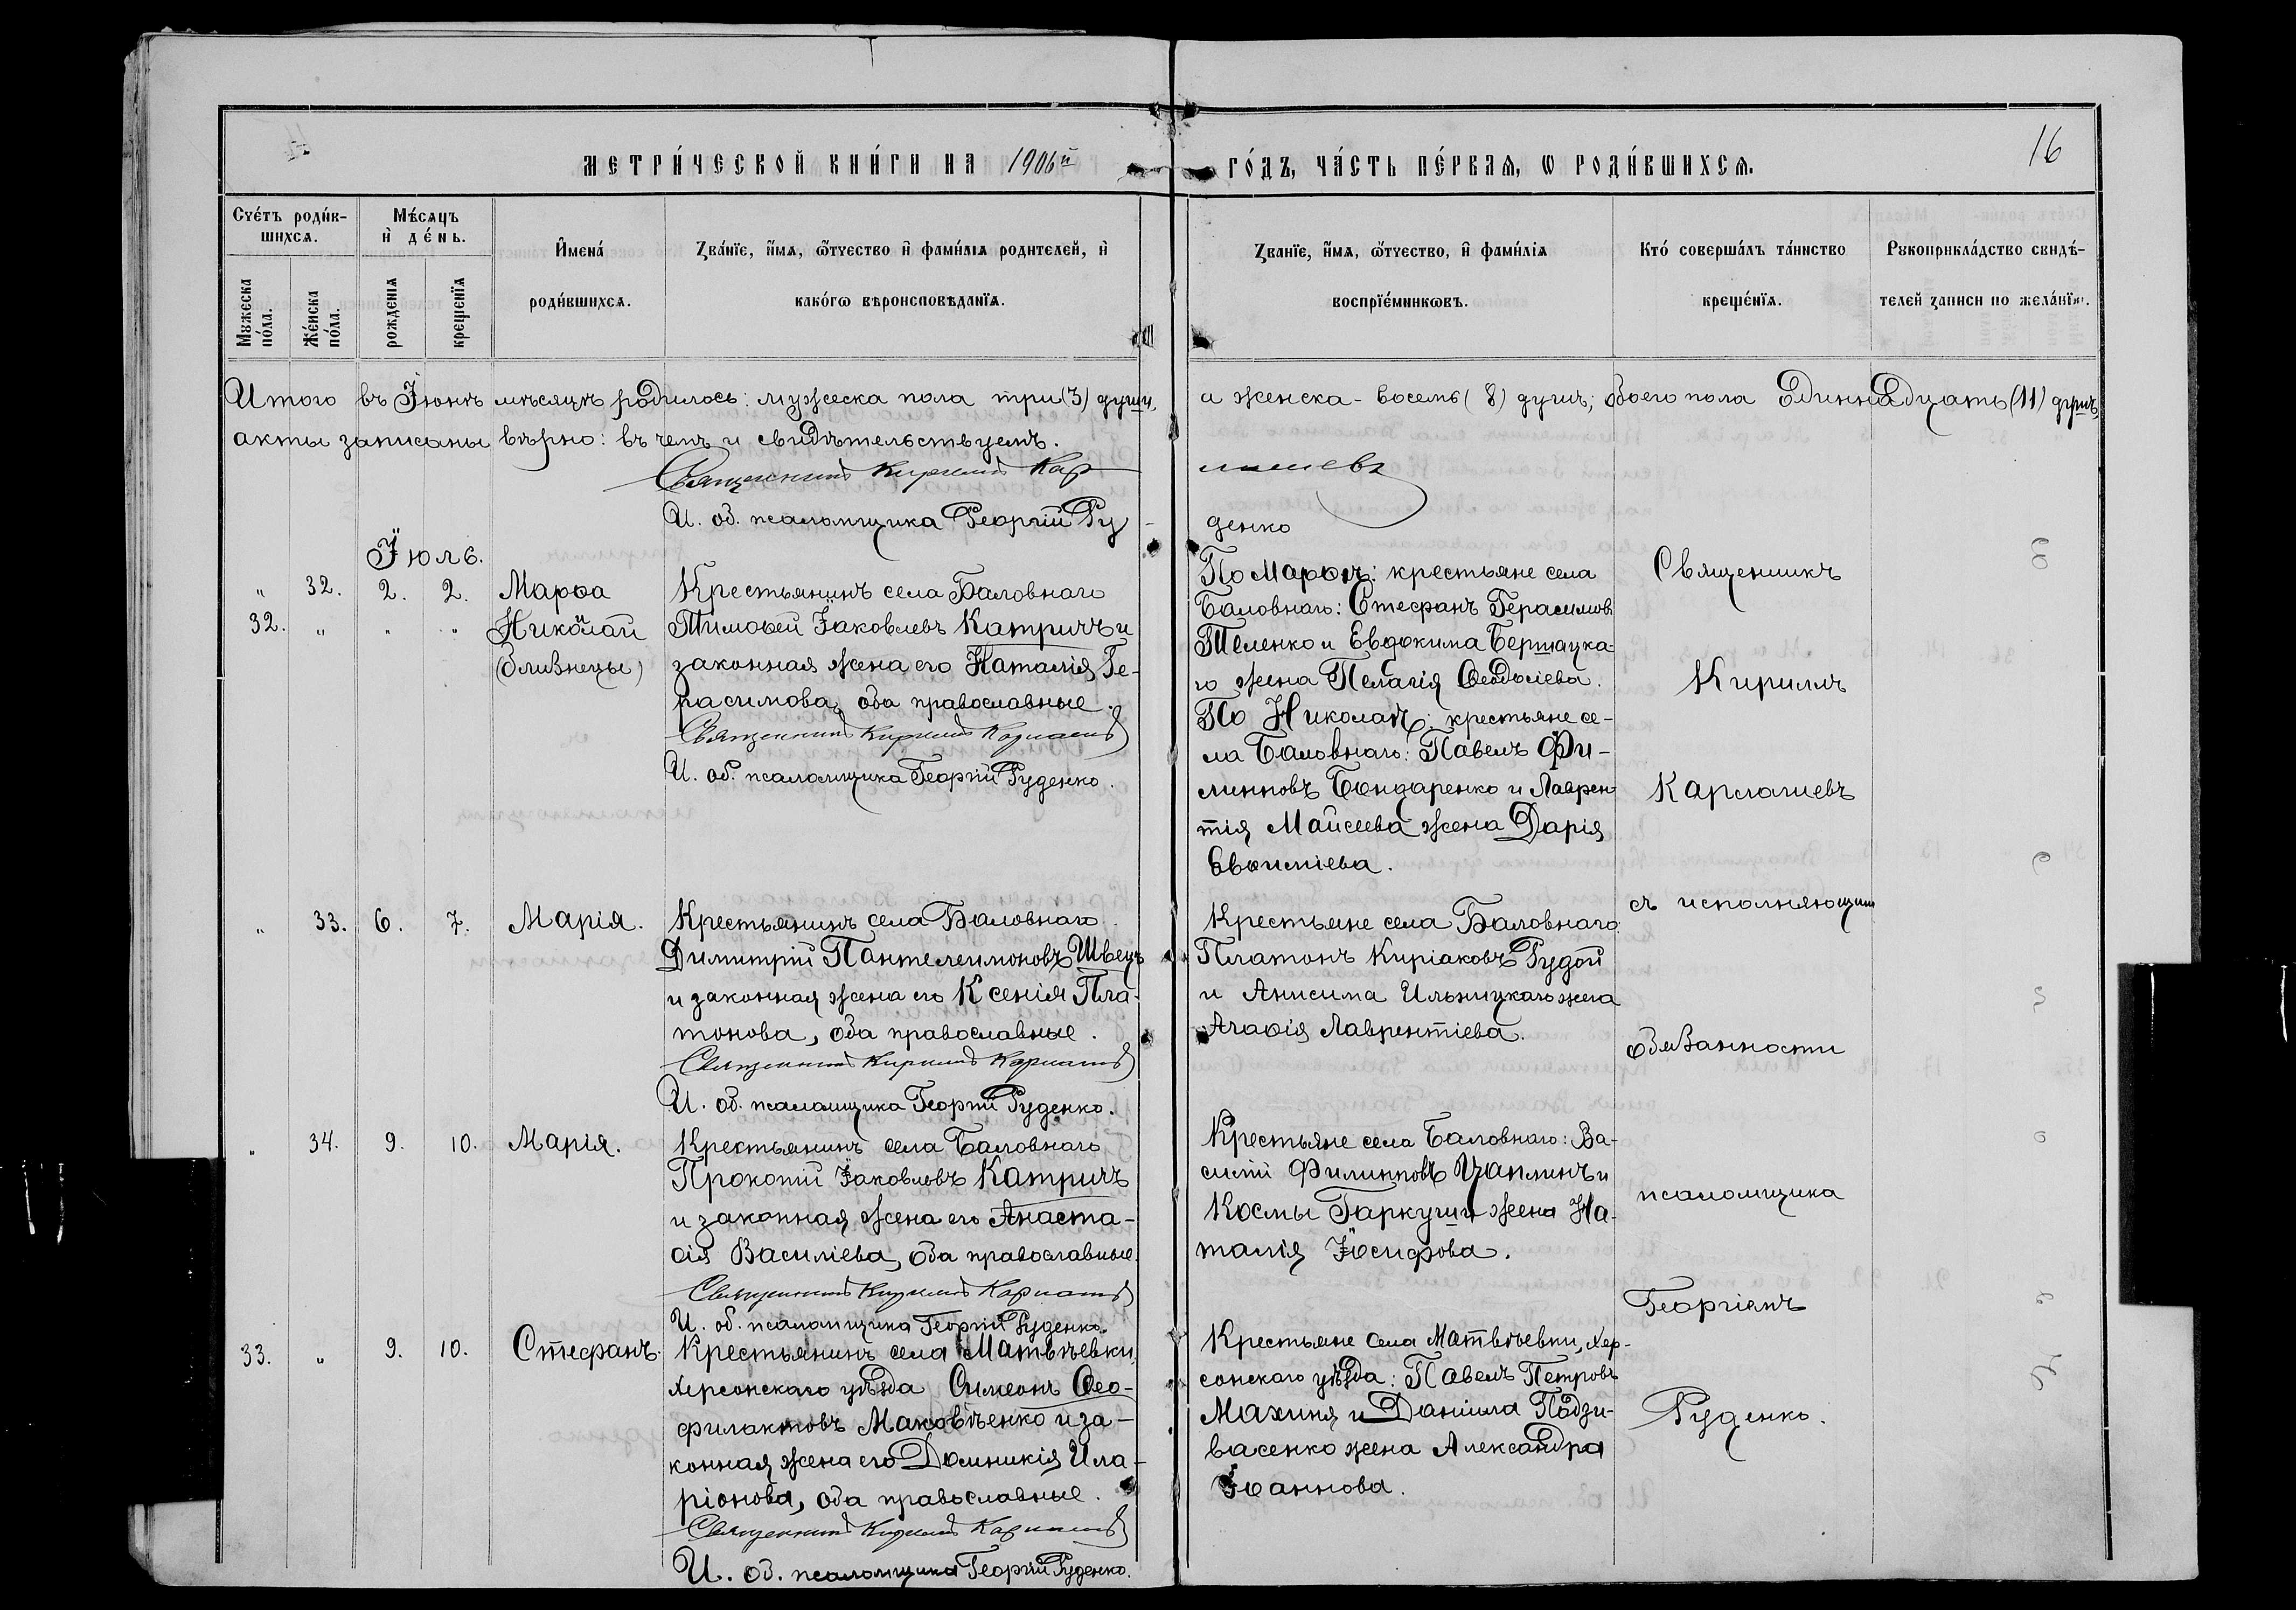 МЕТРИ́ЧЕСКОЙ КНИ́ГИ НА 1906й ГО́ДЪ, ЧА́СТЬ ПЕ́РВАЯ, Ѡ РОДИ́ВШИХСЯ.
16
Счетъ роди́в-
шихся.
Мѣсяцъ
и де́нь.
Имена́
роди́вшихся.
Зва́нїе, и҆мя, ѻ҆тчество и҆ фами́лїа родителей, и҆
како́гѡ вѣроисповѣданїя.
Званїе, и҆мя, ѻ҆тчество, и҆ фами́лїа
воспрїе́мникѡвъ.
Кто́ соверша́лъ та́инство
креще́нїя.
Рукоприкла́дство свидѣ́-
телей записи по жела́нїю.
Мужеска
по́ла.
Же́нска
по́ла.
рожденїя
крещенїя
Итого въ Іюнѣ мѣсяцѣ родилось: мужеска пола три (3) души, и женска - восемь (8) душъ; обоего пола Одиннадцать (11) душъ,
акты записаны вѣрно: въ чемъ и свидѣтельствуемъ.
Священникъ Кирилъ Кар
машевъ
И. об. псаломщика Георгій Ру-
денко
Іюль.
" 32. 2. 2. Марѳа
32. " " " Николай
(близнецы)
Крестьянинъ села Баловнаго
Тимоѳей Іаковлевъ Катричъ и
законная жена его Наталія Ге-
расимова, оба православные.
Священникъ Кирилъ Кармашевъ
И. об. псаломщика Георгій Руденко.
По Марѳѣ: крестьяне села
Баловнаго: Стефанъ Герасимов
Теленко и Евдокима Бершацка-
го жена Пелагія Ѳеодосіева.
По Николаѣ: крестьяне се-
ла Баловнаго: Павелъ Фи-
липповъ Бондаренко и Лаврен-
тія Маисеева жена Дарія
Евѳиміева.
Священникъ
Кириллъ
Кармашевъ
съ исполняющим
обязанности
псаломщика
Георгіемъ
Руденко.
" 33. 6. 7. Марія.
Крестьянинъ села Баловнаго
Димитрій Пантелеимоновъ Швецъ
и законная жена его Ксенія Пла-
тонова, оба православные.
Священникъ Кирилъ Кармашевъ
И. об. псаломщика Георгій Руденко.
Крестьяне села Баловнаго:
Платонъ Киріаковъ Рудой
и Анисима Ильницкаго жена
Агаѳія Лаврентіева.
" 34. 9. 10. Марія.
Крестьянинъ села Баловнаго
Прокопій Іаковлевъ Катричъ
и законная жена его Анаста-
сія Василіева, оба православные.
Священникъ Кирилъ Кармашевъ
И. об. псаломщика Георгій Руденко.
Крестьяне села Баловнаго: Ва-
силій Филипповъ Чаплинъ и
Космы Гаркуши жена На-
талія Іосифова.
33. " 9. 10. Стефанъ.
Крестьянинъ села Матвѣевки,
Херсонскаго уѣзда Симеонъ Ѳео-
филактовъ Маковѣенко и за-
конная жена его Домникія Ила-
ріонова, оба православные.
Священникъ Кирилъ Кармашевъ
И. об. псаломщика Георгій Руденко.
Крестьяне села Матвѣевки, Хер-
сонскаго уѣзда: Павелъ Петровъ
Махиня и Даніила Подзи-
васенко жена Александра
Іоаннова.